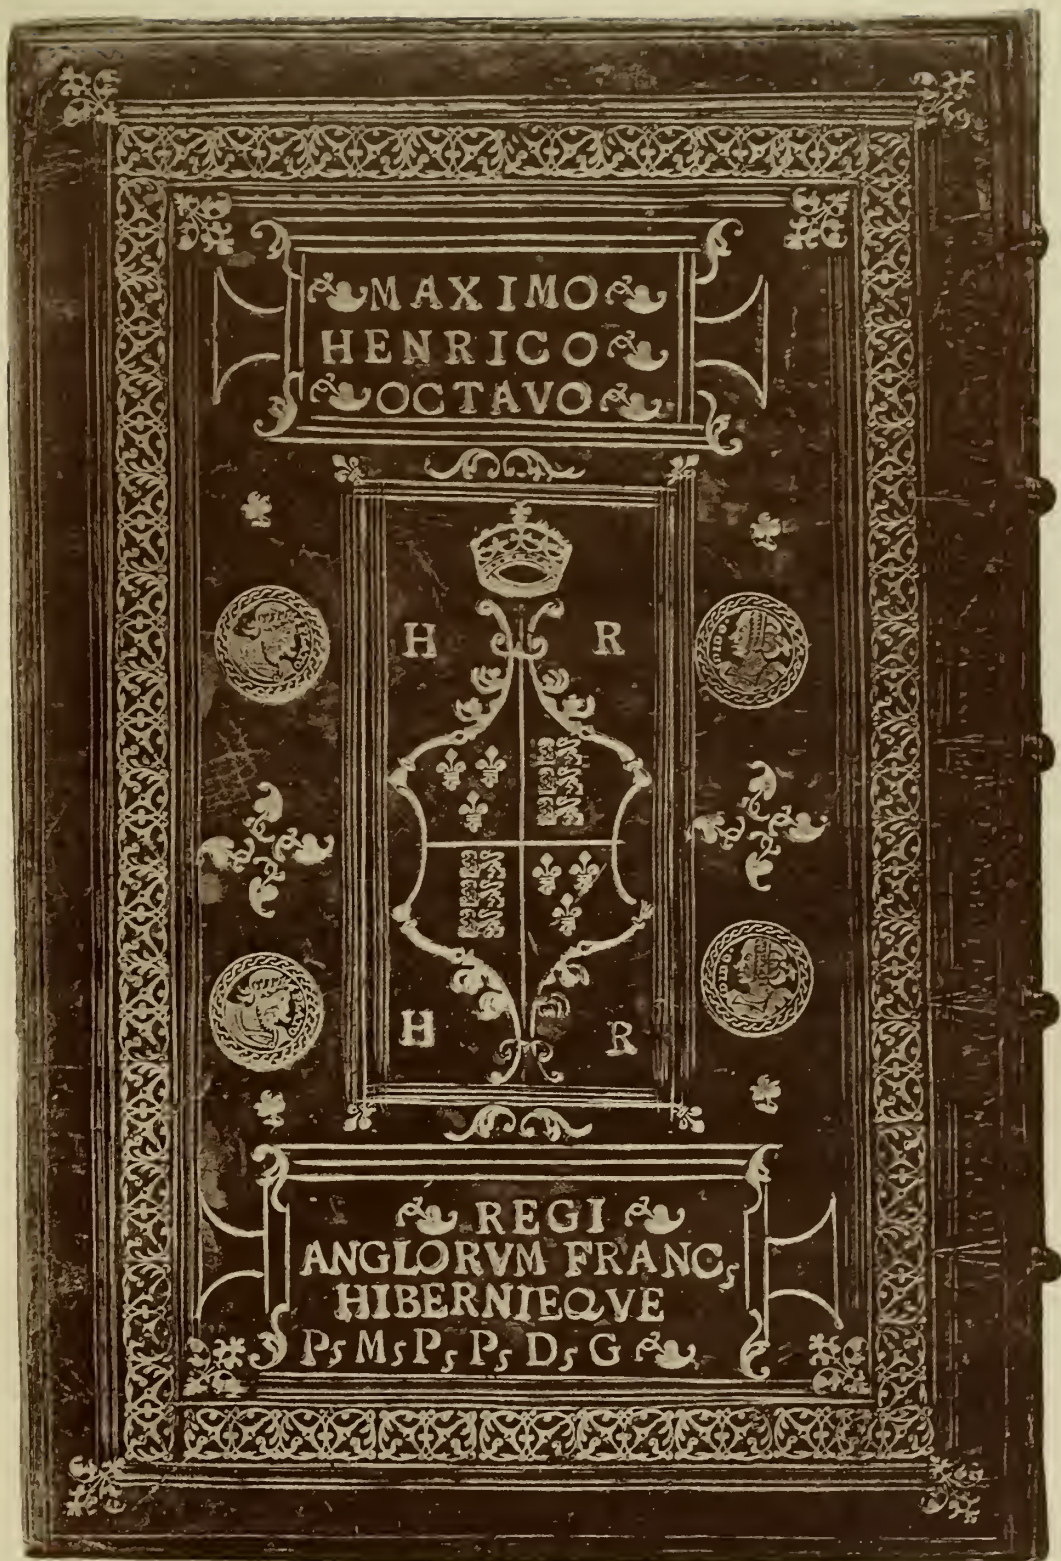 MAXIMO
HENRICO
OCTAVO
H R
H R
REGI
ANGLORVM FRANC,
HIBERNIEQVE
P, M, P, P, D, G